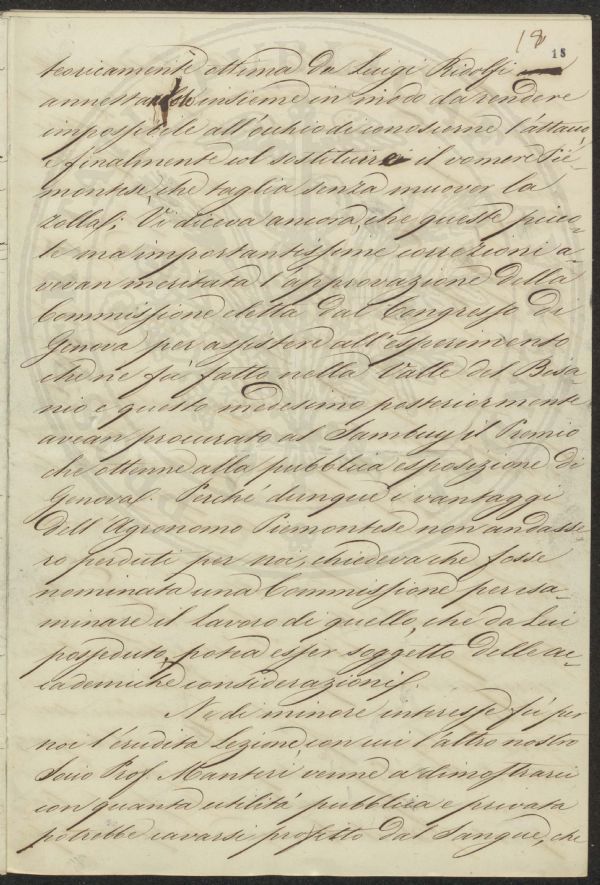 18
18
teoricamente ottima da Luigi Ridolfi
annestandole insieme in modo da rendere
impossibile all'occhio di conoscerne l'attacco
e finalmente col sostituire il vomere Pie=
montese, che taglia senza muover la
zolla. Vi diceva ancora, che queste picco=
le ma importantissime correzioni a=
vevan meritata l'approvazione della
Commissione eletta dal Congresso di
Genova per assistere all'esperimento
che ne fu' fatto nella Valle del Bisa=
nio e questo medesimo posteriormente
avean procurato al Sambuy il Premio
che ottenne alla pubblica esposizione di
Genova. Perché dunque i vantaggi
dell'Agronomo Piemontese non andasse
ro perduti per noi, chiedeva che fosse
nominata una Commissione per esa=
minare il lavoro di quello, che da Lui
posseduto, potea esser soggetto delle ac=
cademiche considerazioni.
Ne di minore interesse fu' per
noi l'erudita Lezione con cui l'altro nostro
Socio Prof. Manteri venne a dimostrarci
con quanta utilitá pubblica e privata
potrebbe cavarsi profitto dal Sangue, che